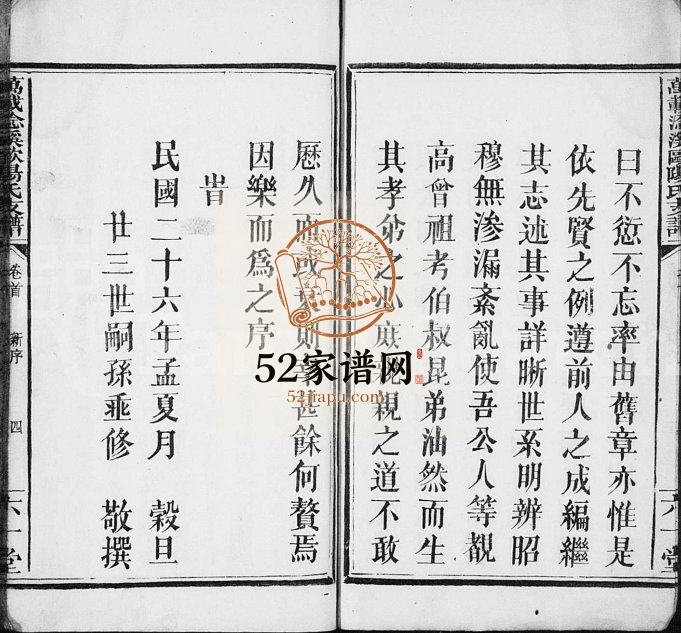 曰不愆不忘率由舊章亦惟是
依先賢之例遵前人之成編繼
其志述其事詳晰世系明辨昭
穆無滲漏紊亂使吾公人等覩
高曾祖考伯叔昆弟油然而生
其孝弟之心庶 親之道不敢
歷久而或 則 甚餘何贅焉
因樂而爲之序
旹
民國二十六年孟夏月 穀旦
廿三世嗣孫垂修 敬撰
萬載 溪歐陽氏支譜
卷首 新序 四
六一堂
52家谱网
52jiapu.com